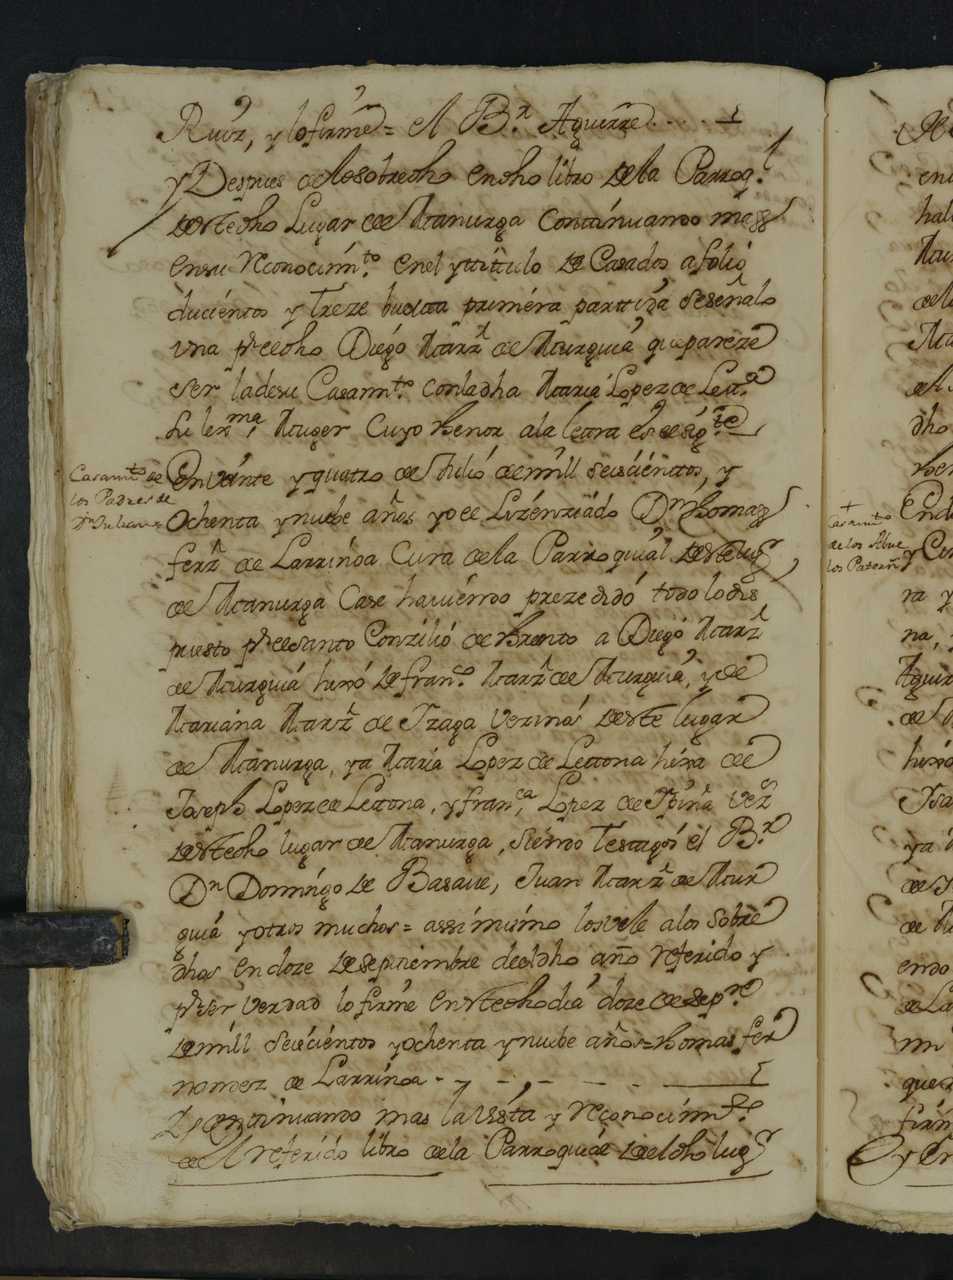 Ruiz, y lo firme = el B.r Aguirre
y Despues de lo sobredho en dho libro de la Parroq.l
deste dho Lugar de Manurga Continuando mas
en su reconocim.to en el ytitulo de Casados a folio
ducientos y treze buelta primera partida se señalo
vna p.r el dho Diego Marz de Murguia que pareze
ser la de su Casam.to con la dha Maria Lopez de Letª
su lexma, Muger Cuyo thenor a la letra es el sig.te
Casamto de
los Padres de
Dn Julian
En veinte y quatro de Julio de mill seiscientos, y
Ochenta y nuebe años yo el Lizenziado Dn thomas
ferz de Larrinoa Cura de la Parroquial deste lugr
de Manurga Case hauiendo prezedido todo lo dis
puesto p.r el santo Conzilio de thrento a Diego Marz
de Murguia hixo de fran.co Marz de Murguia, y de
Mariana Marz de Yzaga vezinos deste lugar
de Manurga, y a Maria Lopez de Letona hixa de
Joseph Lopez de Letona, y fran.ca Lopez de vezs
deste dho lugar de Manurga, siendo testigos el B.r
Dn Domingo de Basaue, Juan Marz de Mur
guia y otros muchos = assimismo los vele a los sobre
dhos en doze de septiembre del dho año referido y
p.r ser verdad lo firme en este dho dia doze de sep.re
de mill seiscientos y ochenta y nuebe años = thomas fer
nandez de Larrinoa
Y continuando mas la vista y reconocim.to
del referido libro de la Parroquia del dho lugr
Casamto
de los Abue
los Patern